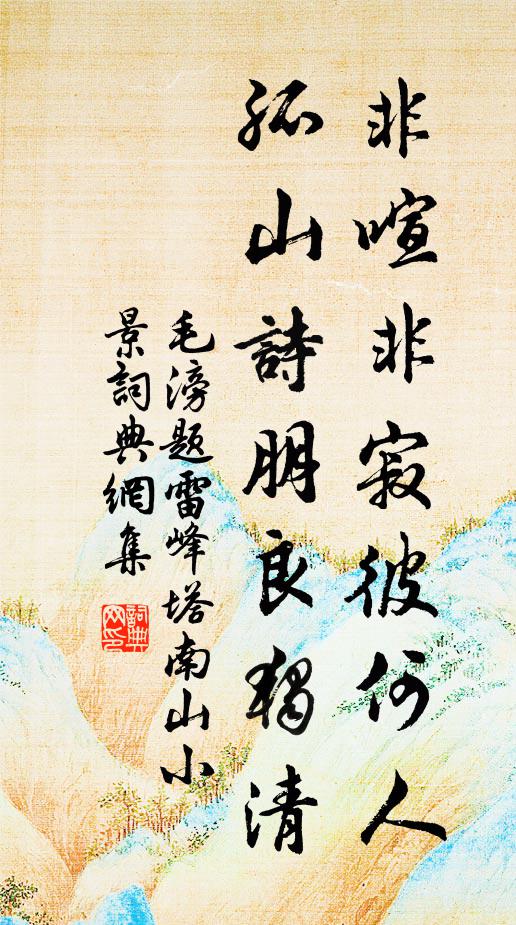 非喧非寂彼何人
孤山詩朋良獨清
毛滂題雷峰塔南山小
景詞典網集
詞典
网印